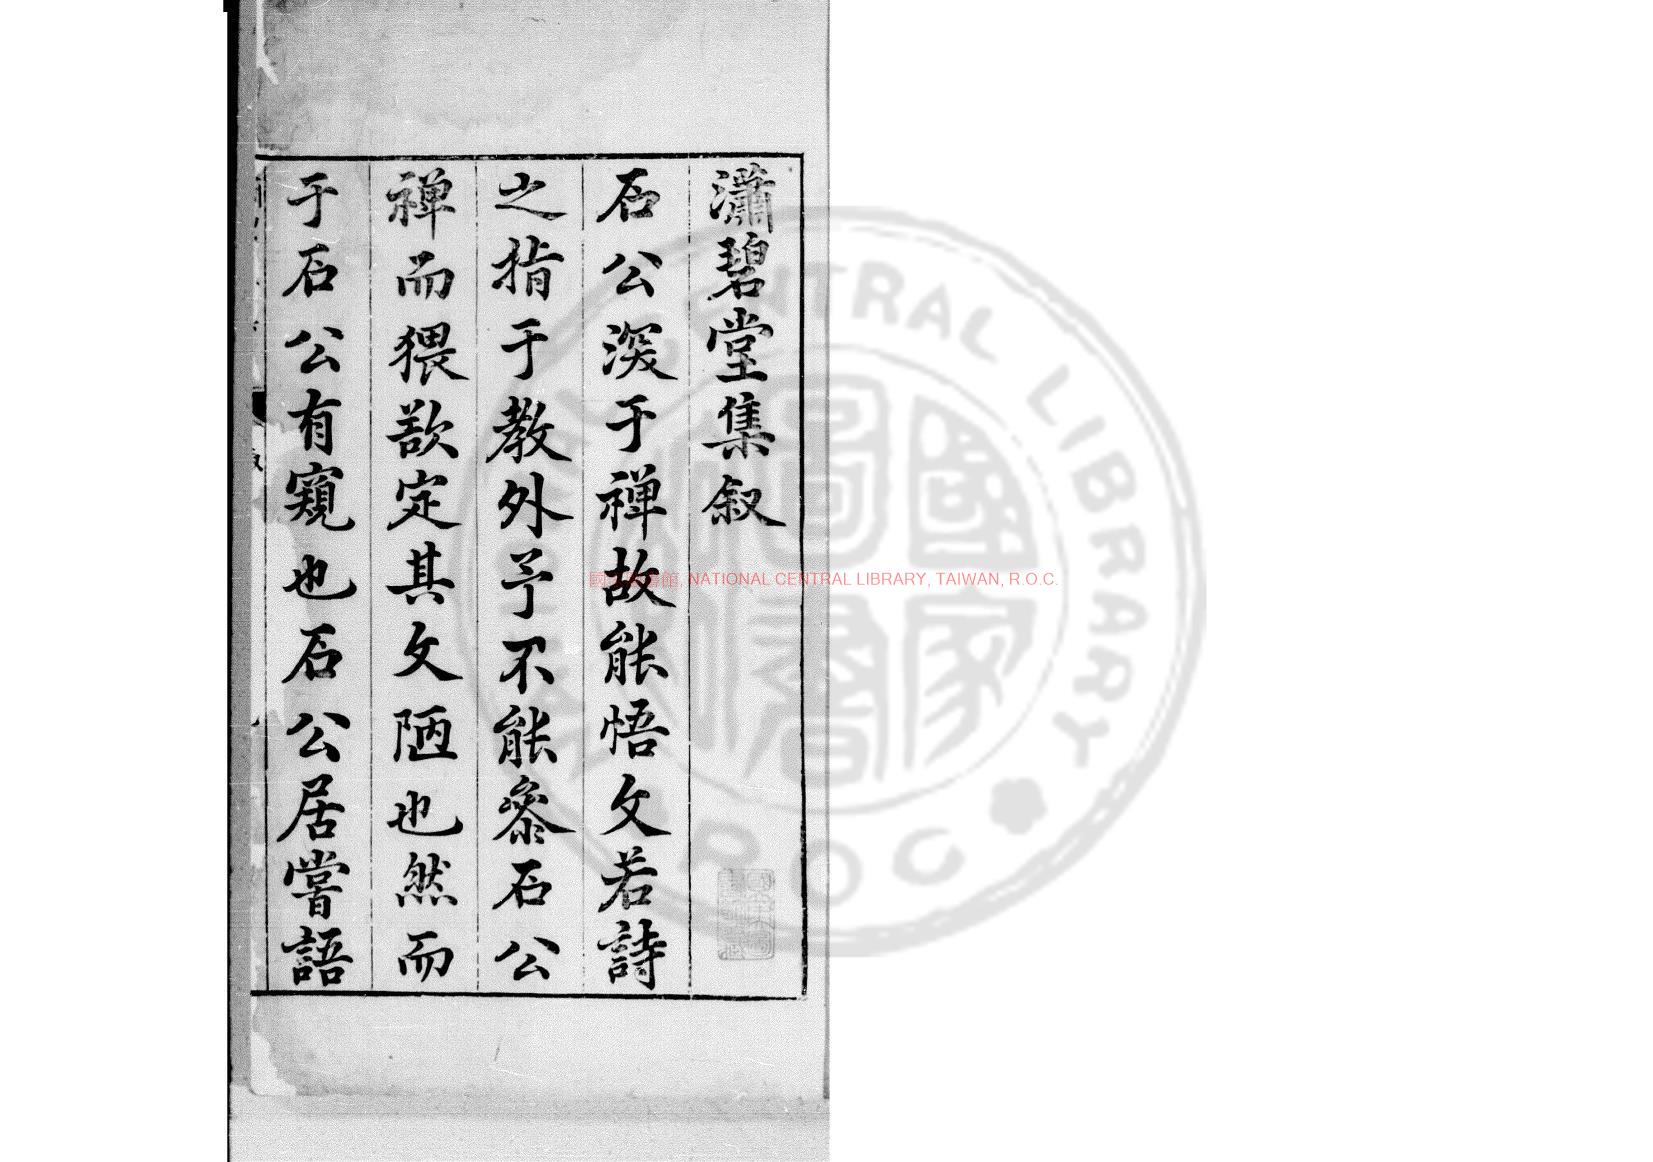 瀟碧堂集叙
石公深于禅故能悟文若詩
之指于教外予不能參石公
禅而猥欲定其文陋也然而
于石公有窺也石公居嘗語
國家圖書館, NATIONAL CENTRAL LIBRARY, TAIWAN, R.O.C.
CENTRAL LIBRARY
ROC
國家圖書